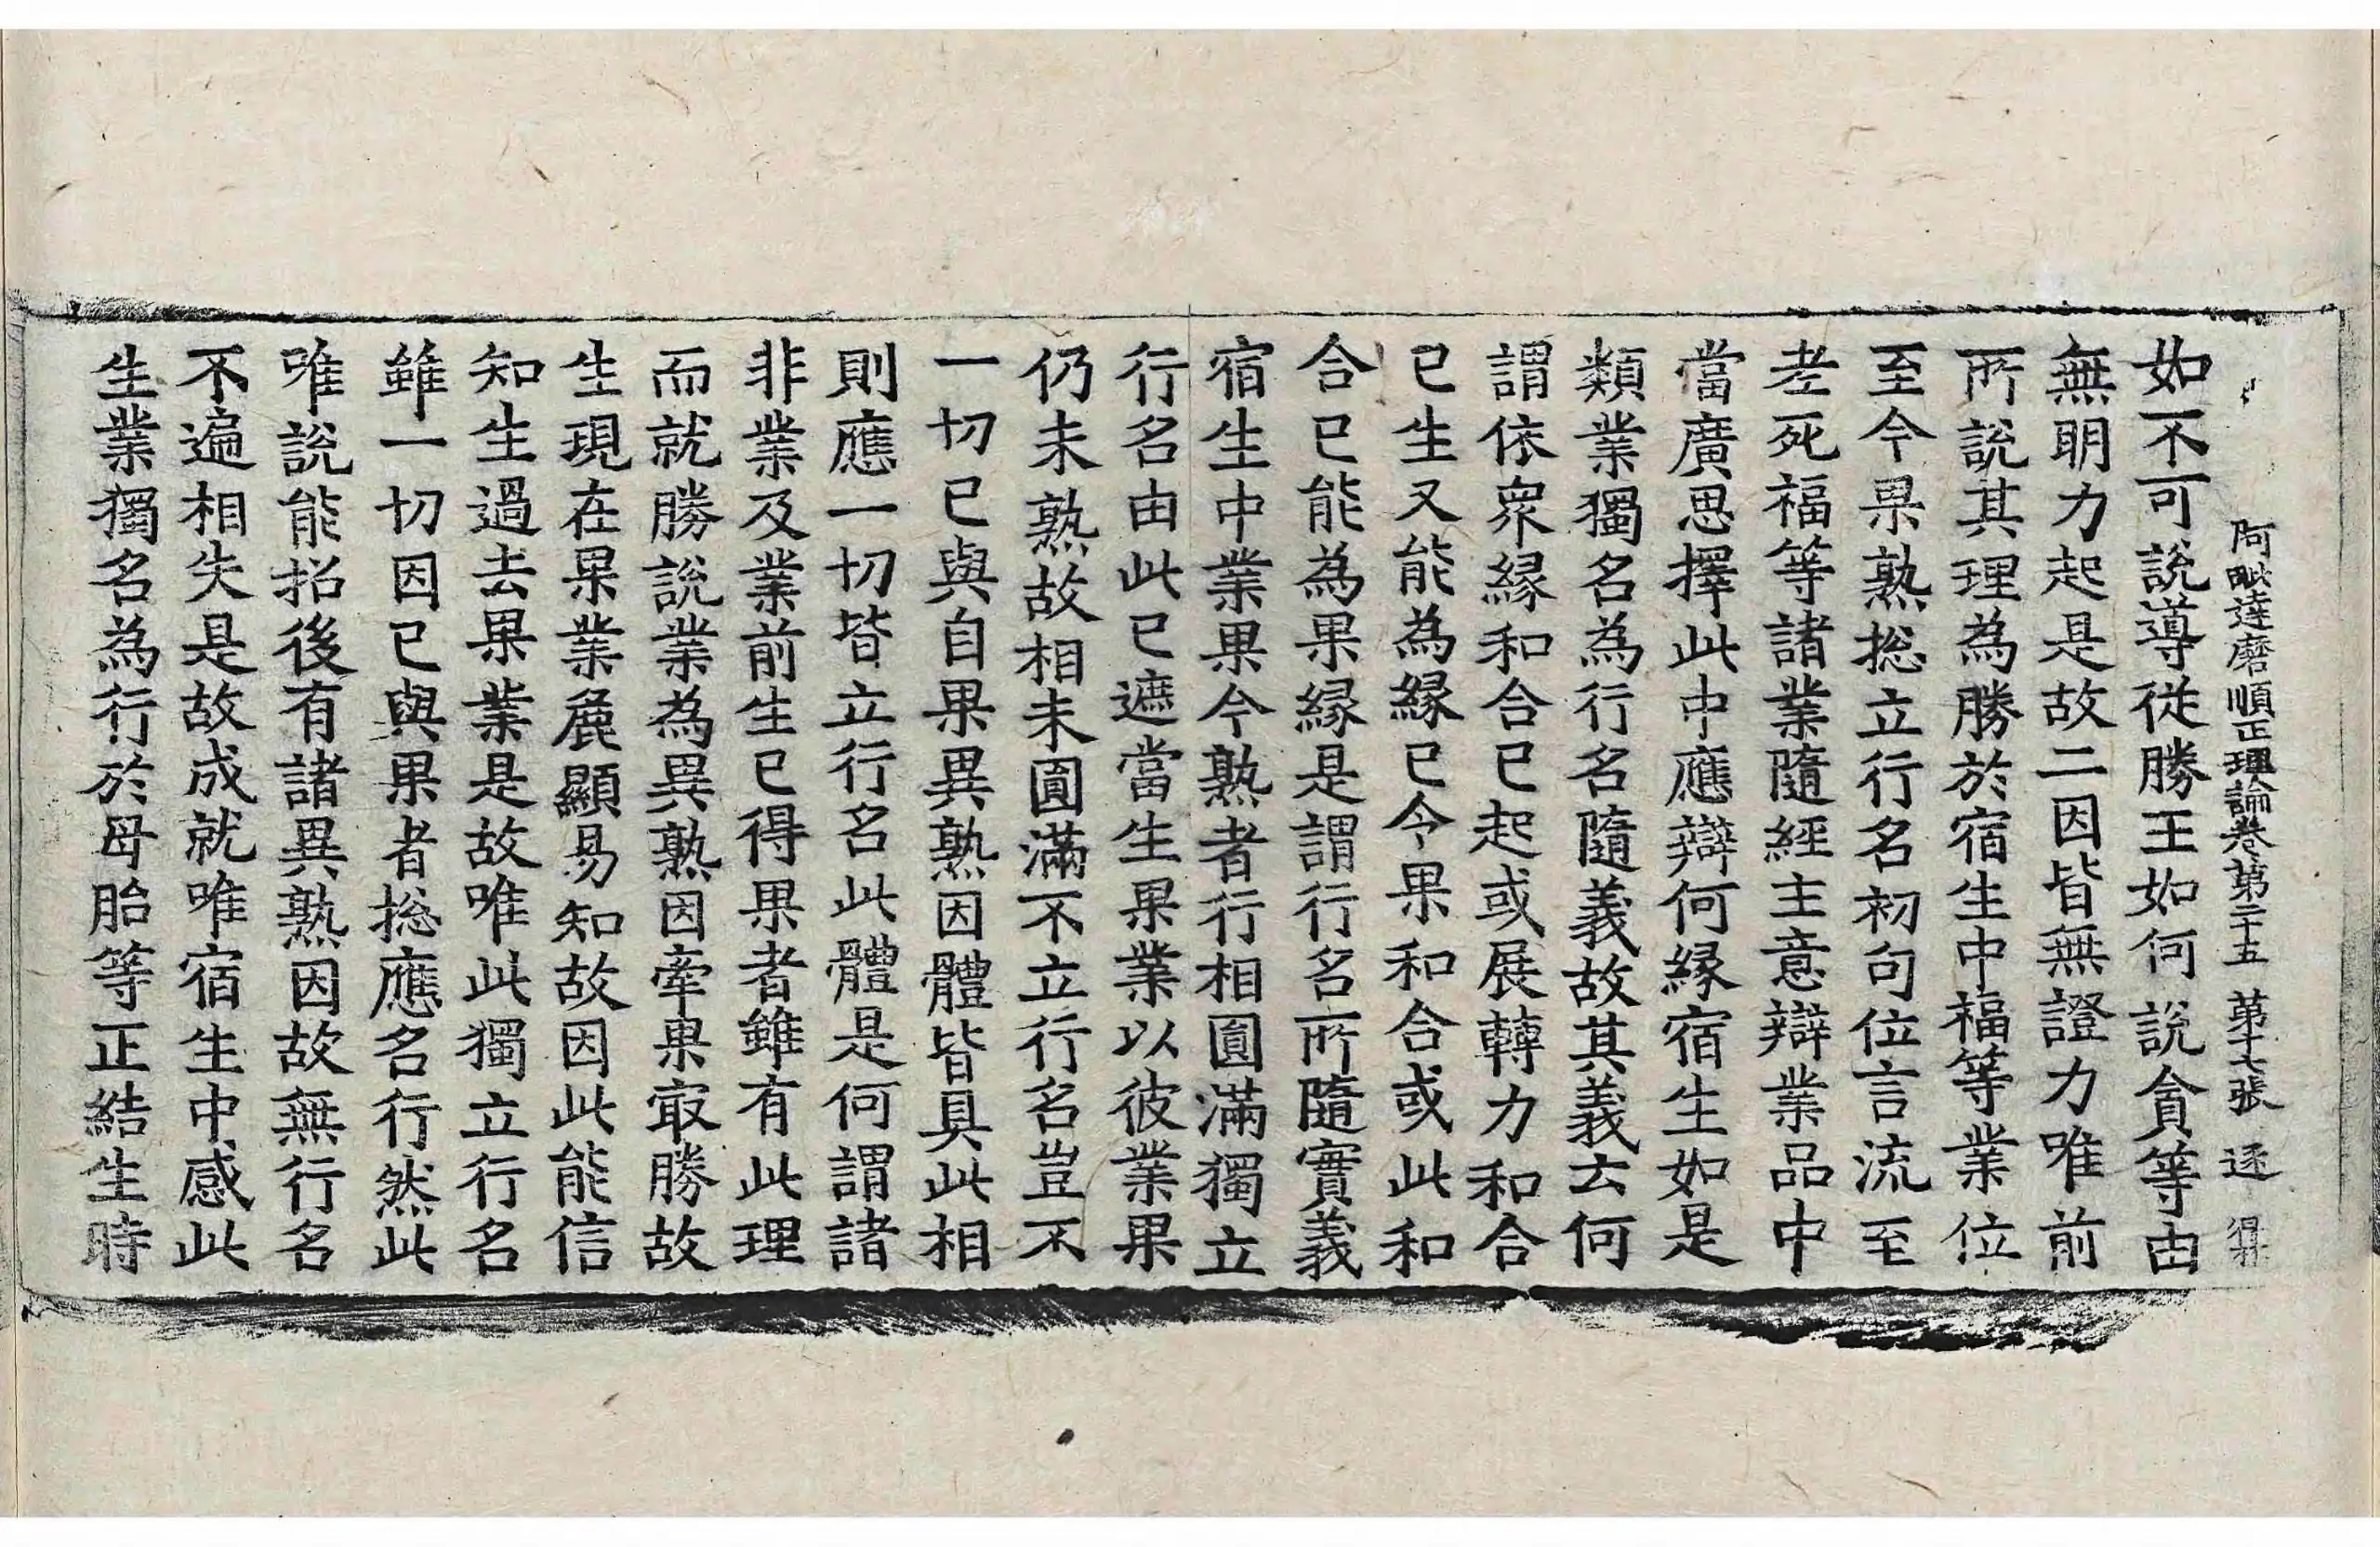 阿毗達磨順正理論卷第二十五 第十七張 逐
如不可說導從勝王如何說貪等由
無明力起是故二因皆無證力唯前
所說其理為勝於宿生中福等業位
至今果熟揔立行名初句位言流至
老死福等諸業隨經主意辯業品中
當廣思擇此中應辯何緣宿生如是
類業獨名為行名隨義故其義云何
謂依眾緣和合已起或展轉力和合
已生又能為緣已今果和合或此和
合已能為果緣是謂行名所隨實義
宿生中業果今熟者行相圓滿獨立
行名由此已遮當生果業以彼業果
仍未熟故相未圓滿不立行名豈不
一切已與自果異熟因體皆具此相
則應一切皆立行名此體是何謂諸
非業及業前生已得果者雖有此理
而就勝說業為異熟因牽果㝡勝故
生現在果業麁顯易知故因此能信
知生過去果業是故唯此獨立行名
雖一切因已與果者揔應名行然此
唯說能招後有諸異熟因故無行名
不遍相失是故成就唯宿生中感此
生業獨名為行於母胎等正結生時